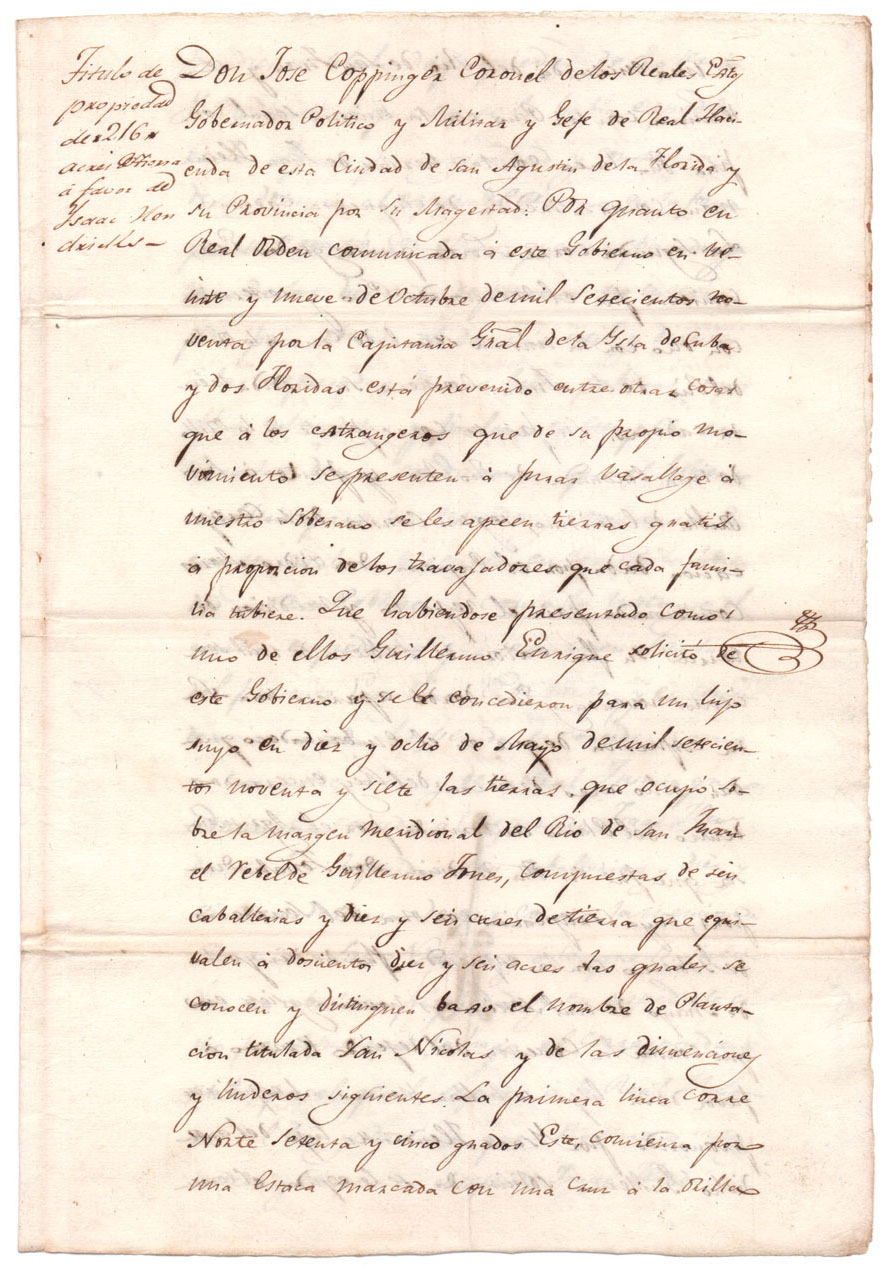 Titulo de
propiedad
de "216"
acres de tierra
á favor de
Isaac Hen
dricks =
Don Jose Coppinger Coronel de los Reales Extos
Gobernador Politico y Militar y Gefe de Real Haci-
enda de esta Ciudad de San Agustin de la Florida y
su Provincia por su Magestad: Por quanto en
Real Orden comunicada á este Gobierno en ve-
inte y nueve de Octubre de mil setecientos no-
venta por la Capitania Gral de la Ysla de Cuba
y dos Floridas está prevenido entre otras cosas
que á los estrangeros que de su propio mo-
vimiento se presenten á jurar Vasallage á
nuestro Soberano se les apeen tierras gratis
á proporcion de los travajadores que cada fami-
lia tubiere. Que habiendose presentado como
uno de ellos Guillermo Enrique solicitó de
este Gobierno y se le concedieron para un hijo
suyo en diez y ocho de Mayo de mil setecien-
tos noventa y siete las tierras que ocupó so-
bre la margen meridional del Rio de San Juan
el rebelde Guillermo Jones, compuestas de seis
caballerias y diez y seis acres de tierra que equi-
valen á doscientos diez y seis acres las quales se
conocen y distinguen baxo el nombre de Planta-
cion titulada San Nicolas y de las dimenciones
y linderos siguientes. La primera linea corre
Norte setenta y cinco grados Este, comienza por
una Estaca marcada con una Cruz á la orilla